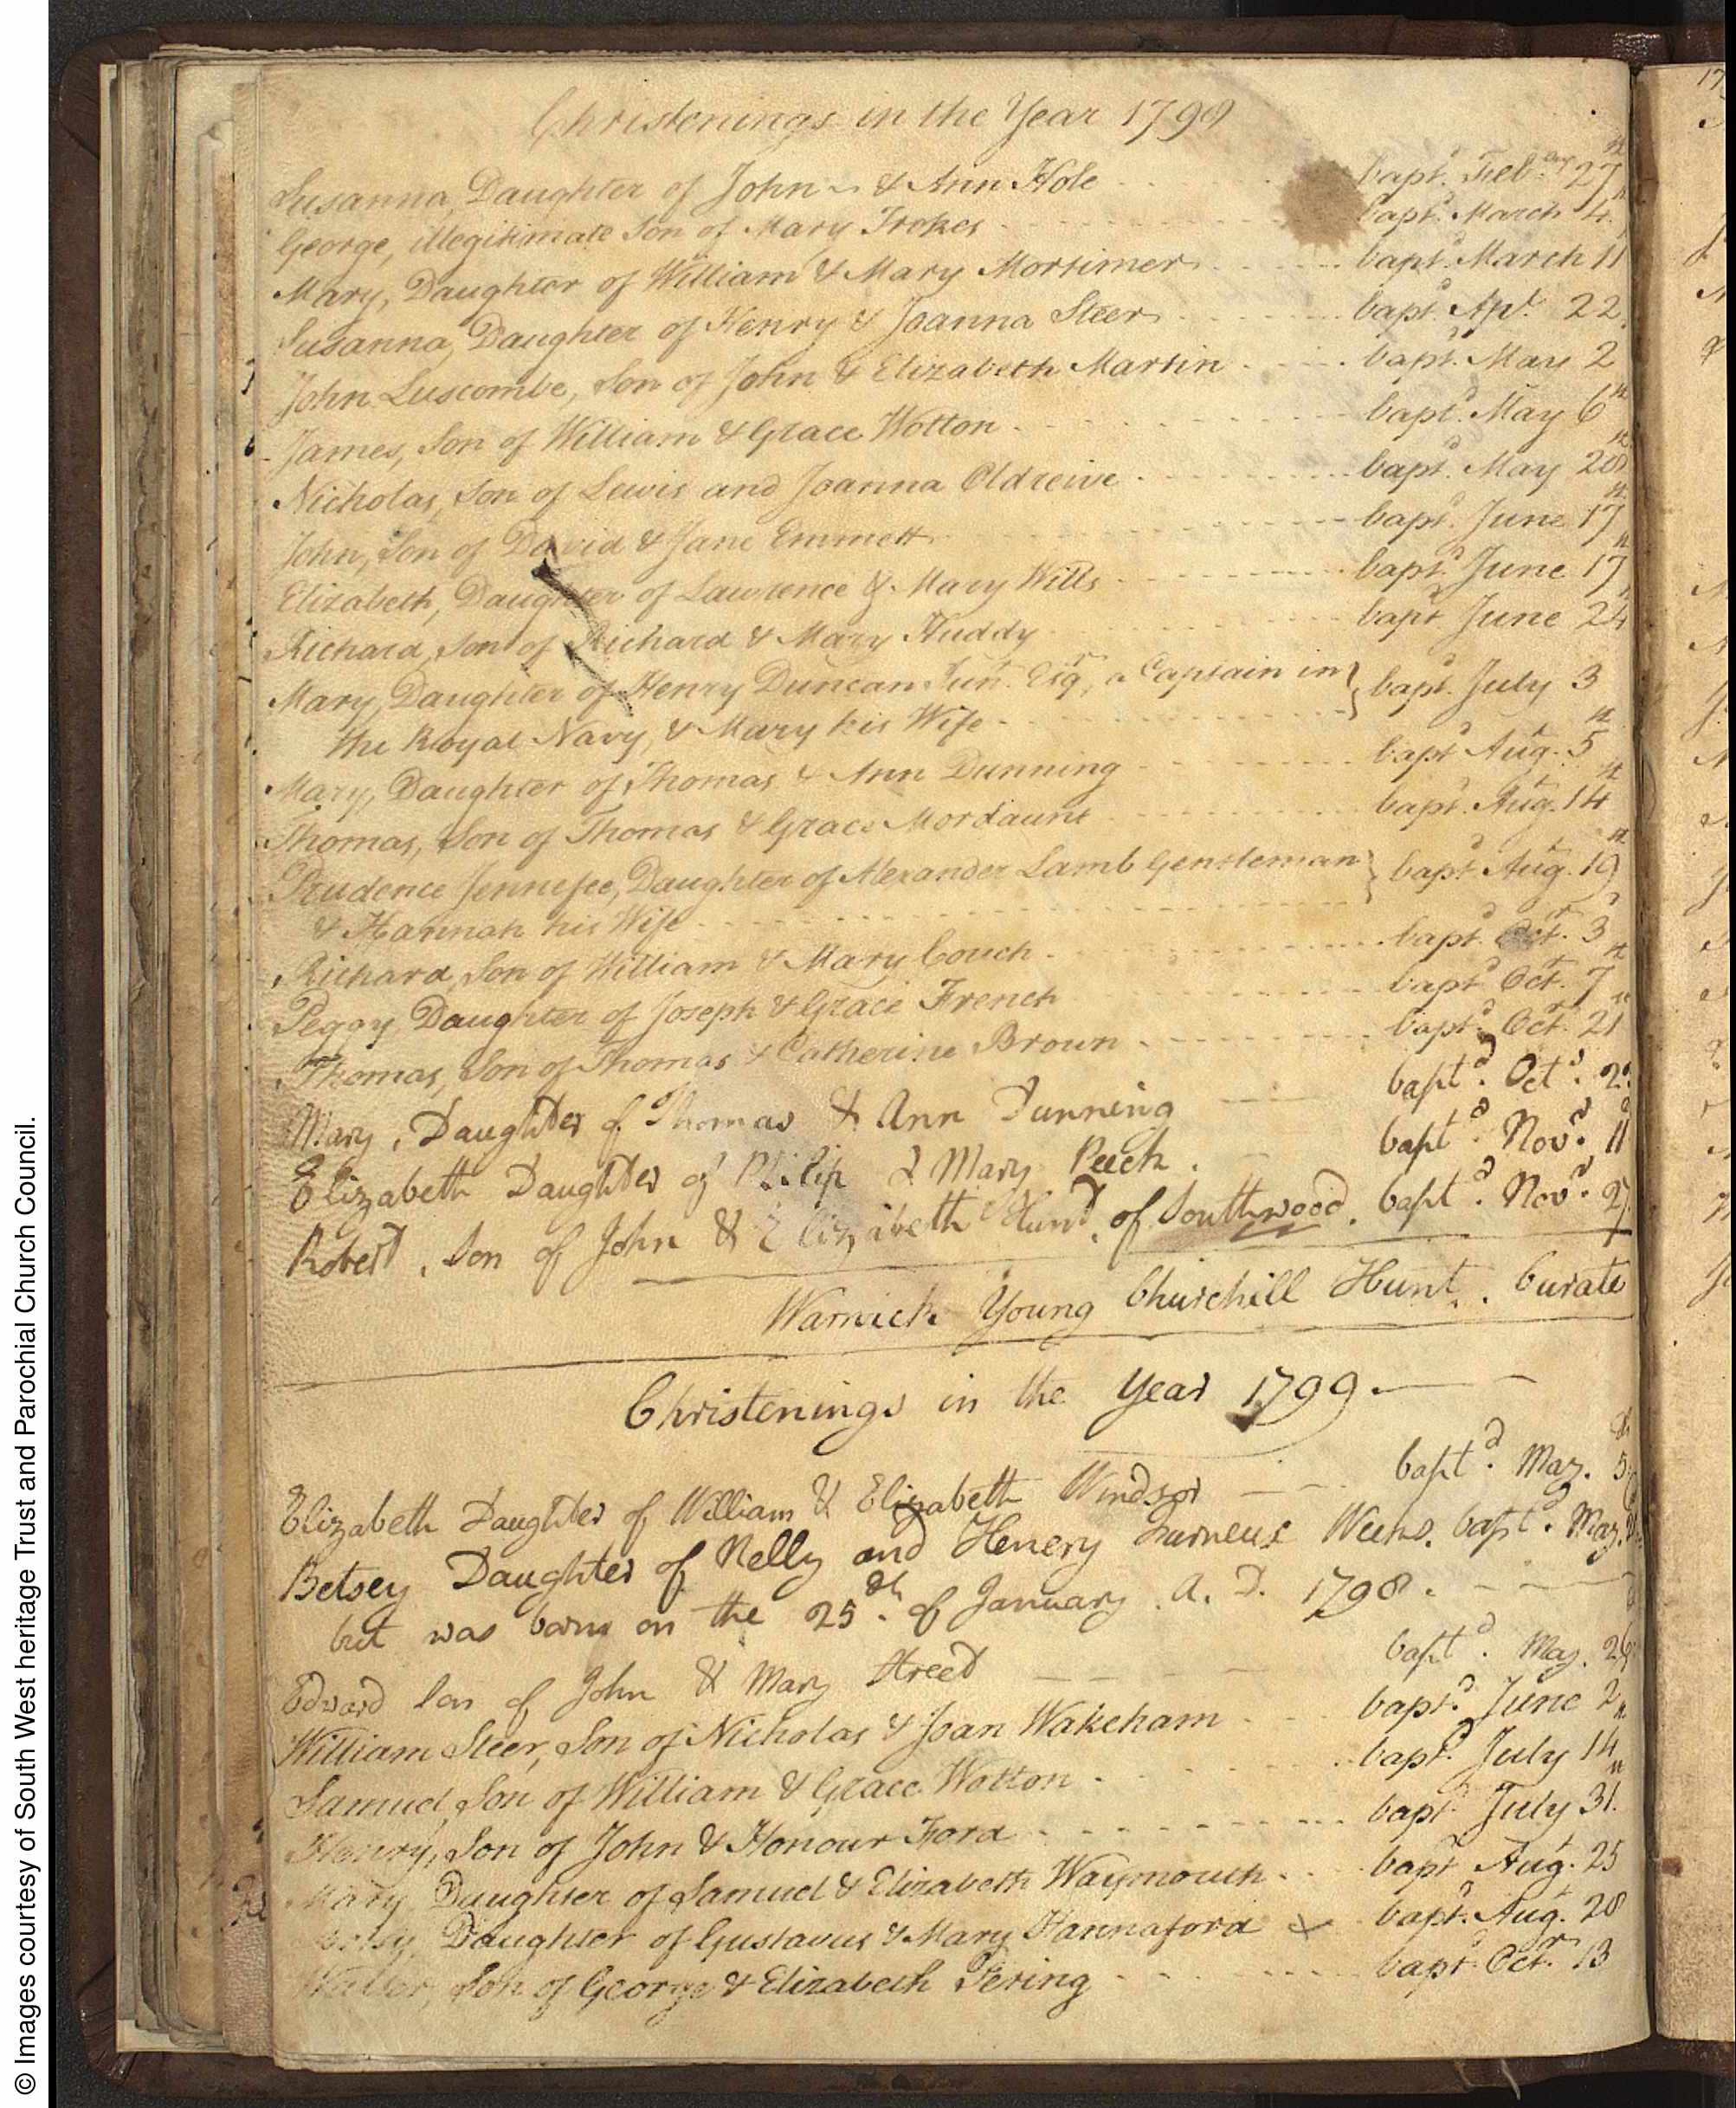 Christenings in the Year 1798
Susanna, Daughter of John & Ann Hole bapt.d Feb.ary 27th
George, illegitimate Son of Mary Trokes bapt.d March 4th
Mary, Daughter of William & Mary Mortimer bapt.d March 11
Susanna, Daughter of Henry & Joanna Steer bapt.d Apl. 22
John Luscombe, Son of John & Elizabeth Martin bapt.d May 2
James, Son of William & Grace Wotton bapt.d May 6th
Nicholas, Son of Lewis and Joanna Oldreive bapt.d May 20th
John, Son of David & Jane Emmett bapt.d June 17th
Elizabeth, Daughter of Lawrence & Mary Wills bapt.d June 17th
Richard, Son of Richard & Mary Huddy bapt.d June 24
Mary, Daughter of Henry Duncan Junr. Esqr, a Captain in } bapt.d July 3
the Royal Navy, & Mary his Wife
Mary, Daughter of Thomas & Ann Dunning bapt.d Aug.t 5th
Thomas, Son of Thomas & Grace Mordaunt bapt.d Aug.t 14th
Prudence Jennefee, Daughter of Alexander Lamb Gentleman } bapt.d Aug.t 19th
& Hannah his Wife
Richard, Son of William & Mary Couch bapt.d Oct.r 3d
Peggy, Daughter of Joseph & Grace French bapt.d Oct.r 7th
Thomas, Son of Thomas & Catherine Brown bapt.d Oct.r 21
Mary, Daughter of Thomas & Ann Dunning bapt.d Oct.r
Elizabeth Daughter of Philip & Mary Peech. bapt.d Nov.r 11
Robert, Son of John & Elizabeth Hunt, of Southwood. bapt.d Nov.r 27
Warwick Young Churchill Hunt. Curate
Christenings in the Year 1799.
Elizabeth Daughter of William & Elizabeth Windsor bapt.d May. 5th
Betsey Daughter of Nelly and Henery Furneux Weeks. bapt.d May.
but was born on the 25th. of January. A. D. 1798.
Edward Son of John & Mary Streed bapt.d May. 26
William Steer, Son of Nicholas & Joan Wakeham bapt.d June 2
Samuel, Son of William & Grace Wotton bapt.d July 14th
Henry, Son of John & Honour Ford bapt.d July 31
Mary Daughter of Samuel & Elizabeth Waymouth bapt.d Aug.t 25
Daughter of Gustavus & Mary Hannaford x bapt.d Aug.t 28
Son of George & Elizabeth Pering bapt.d Oct.r 13
© Images courtesy of South West heritage Trust and Parochial Church Council.